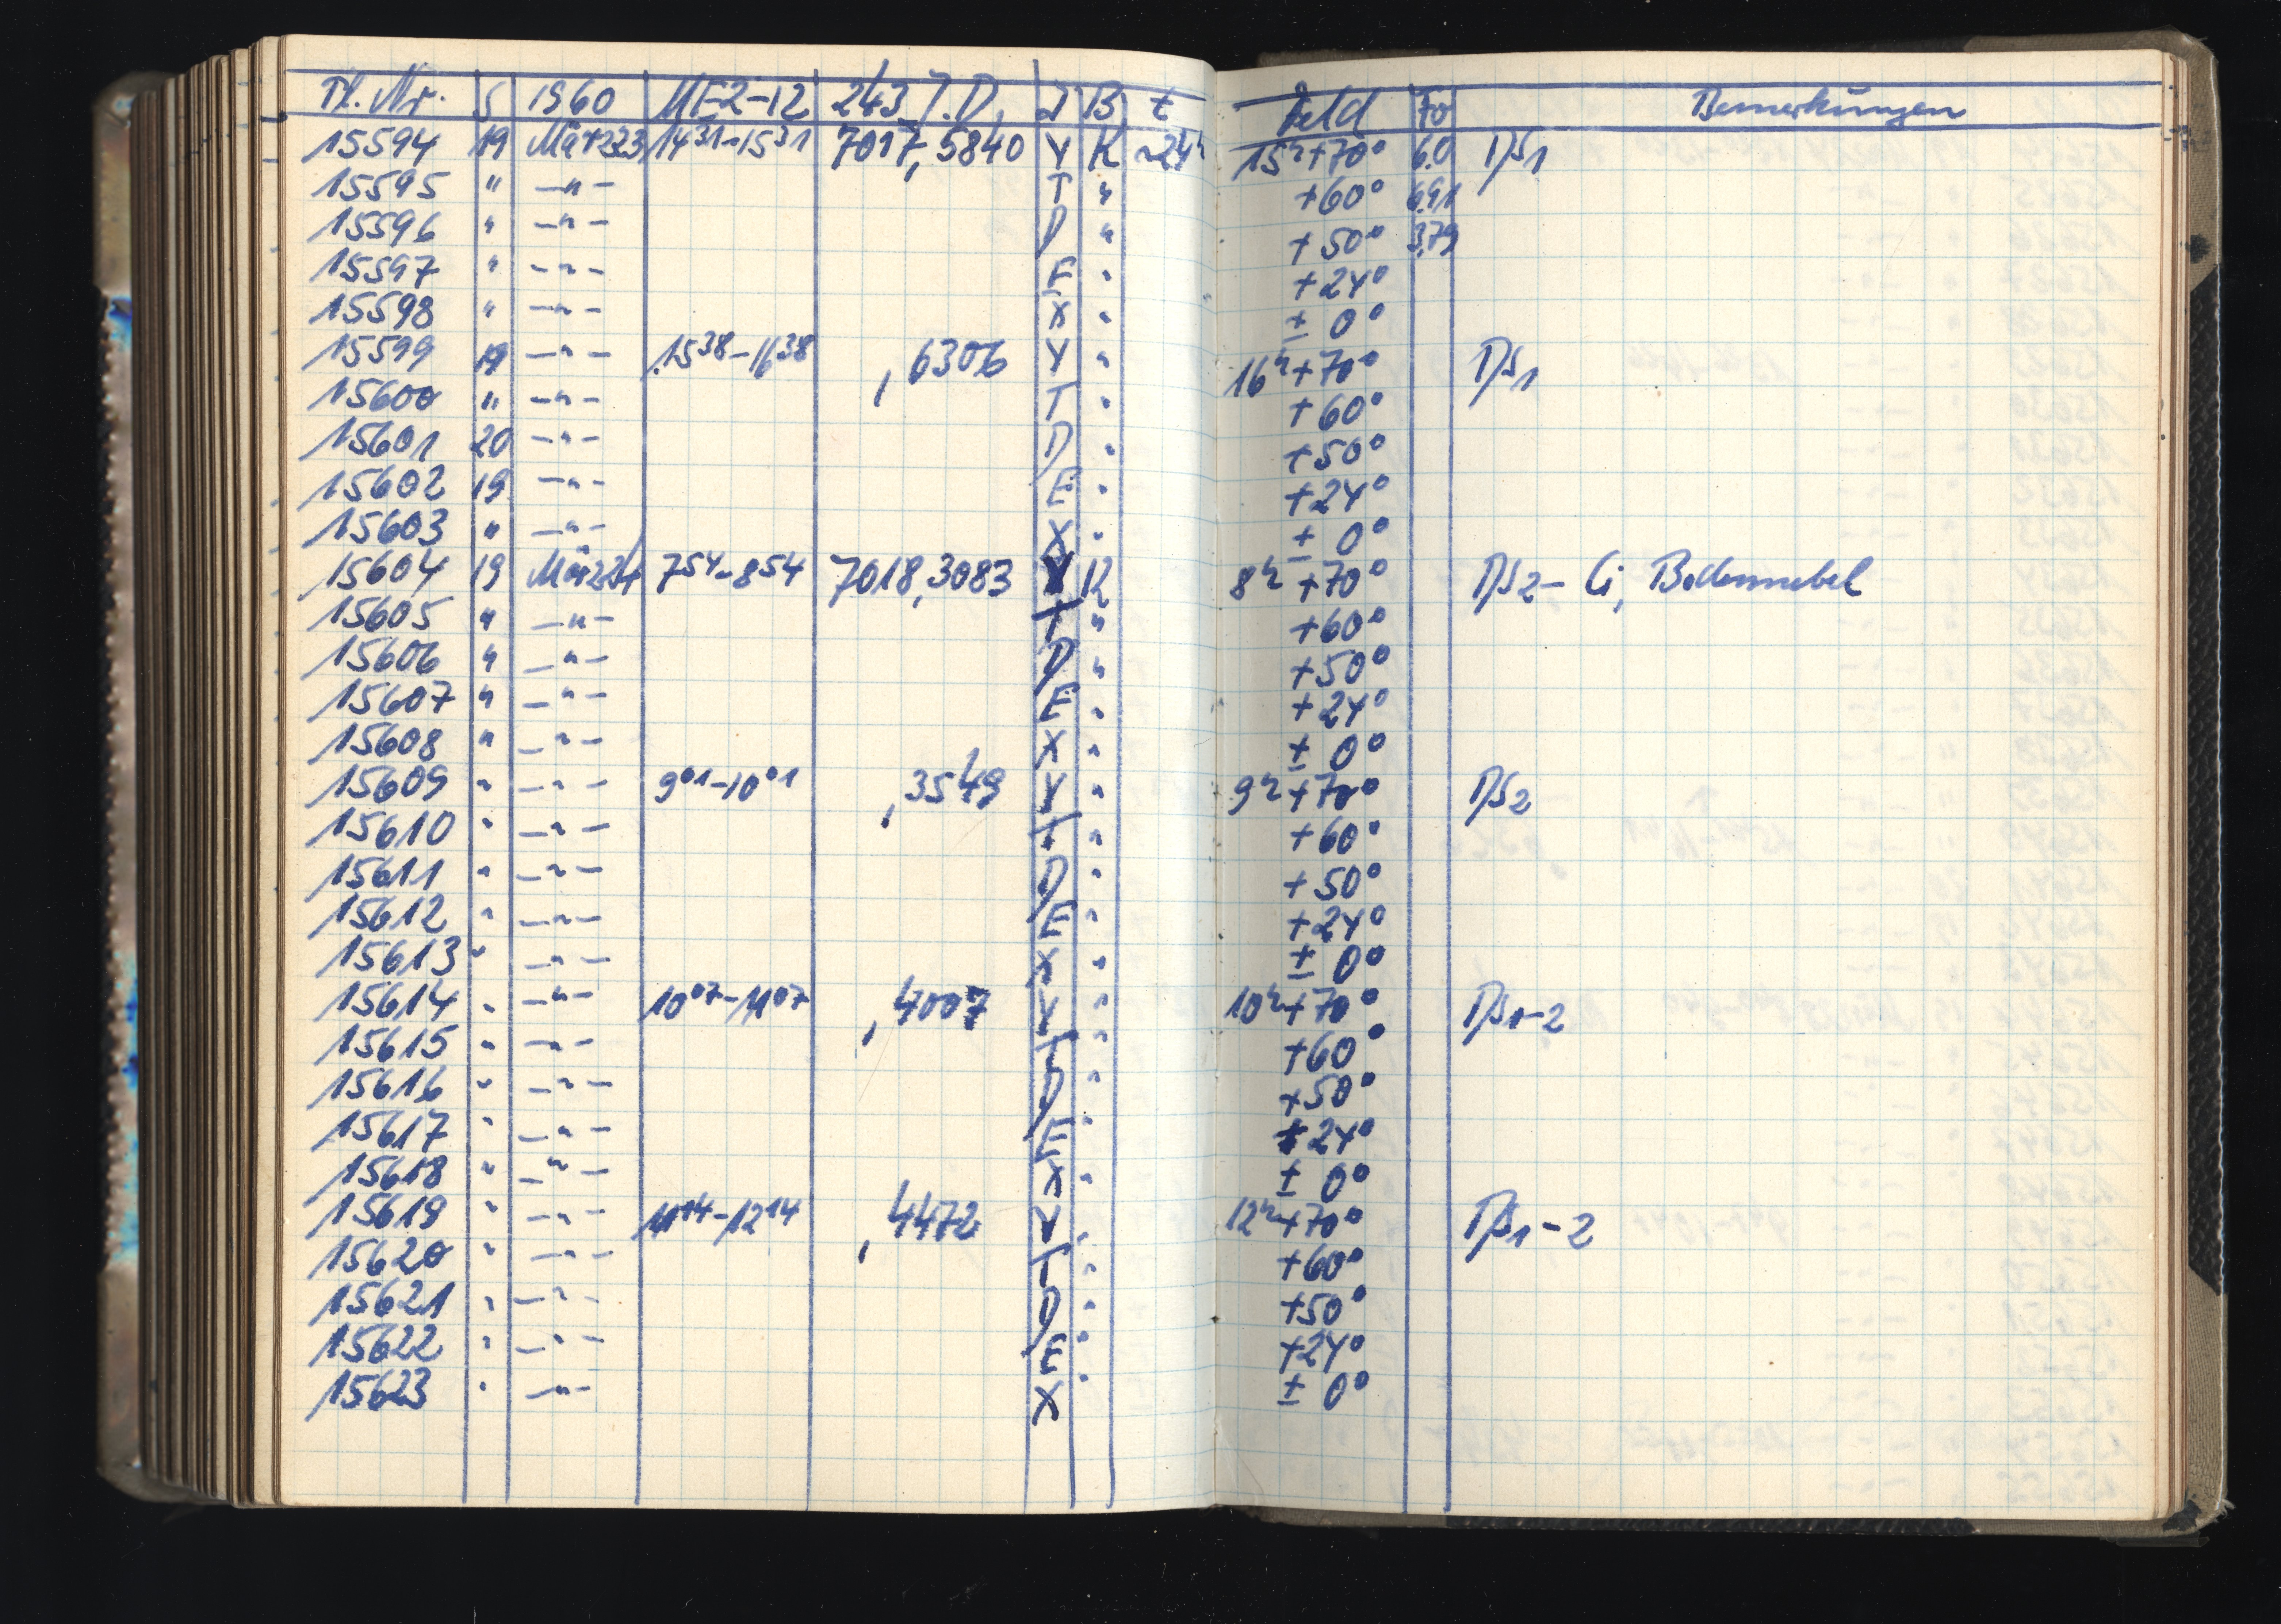 Pl. Nr. S 1960 MEZ-12 243 J.D. J B t Feld Fo Bemerkungen
15594 19 März 23 14 31-15 31 7017,5840 Y K ~24h 15h+70° 6.0 DS1
15595 " -"- T " +60° 6.91
15596 " -"- D " +50° 3.79
15597 " -"- E " +24°
15598 " -"- X " ± 0°
15599 19 -"- 15 38-16 38 ,6306 Y " 16h+70° DS1
15600 " -"- T " +60°
15601 20 -"- D " +50°
15602 19 -"- E " +24°
15603 " -"- X " ± 0°
15604 19 März 24 7 54-8 54 7018,3083 Y K 8h +70° DS2- Ci, Bodennebel
15605 " -"- T " +60°
15606 " -"- D " +50°
15607 " -"- E " +24°
15608 " -"- X " ± 0°
15609 " -"- 9 01-10 01 ,3549 Y " 9h+70° DS2
15610 " -"- T " +60°
15611 " -"- D " +50°
15612 " -"- E " +24°
15613 " -"- X " ± 0°
15614 " -"- 10 07-11 07 ,4007 Y " 10h+70° DS1-2
15615 " -"- T " +60°
15616 " -"- D " +50°
15617 " -"- E " +24°
15618 " -"- X " ± 0°
15619 " -"- 11 14-12 14 ,4472 Y " 12h+70° DS1-2
15620 " -"- T " +60°
15621 " -"- D " +50°
15622 " -"- E " +24°
15623 " -"- X " ± 0°